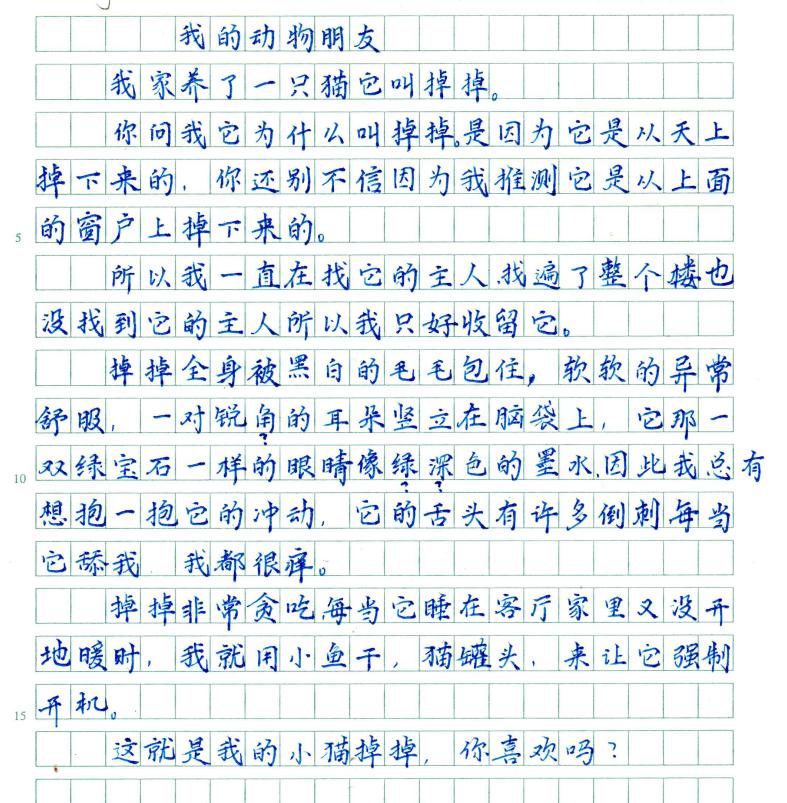 我的动物朋友
我家养了一只猫它叫掉掉。
你问我它为什么叫掉掉。是因为它是从天上
掉下来的，你还别不信因为我推测它是从上面
5 的窗户上掉下来的。
所以我一直在找它的主人，找遍了整个楼也
没找到它的主人所以我只好收留它。
掉掉全身被黑白的毛毛包住，软软的异常
舒服，一对锐角的耳朵竖立在脑袋上，它那一
?
10 双绿宝石一样的眼睛像绿深色的墨水，因此我总有
? ?
想抱一抱它的冲动，它的舌头有许多倒刺每当
它舔我 我都很痒。
掉掉非常贪吃，每当它睡在客厅家里又没开
地暖时，我就用小鱼干，猫罐头，来让它强制
15 开机。
这就是我的小猫掉掉，你喜欢吗？